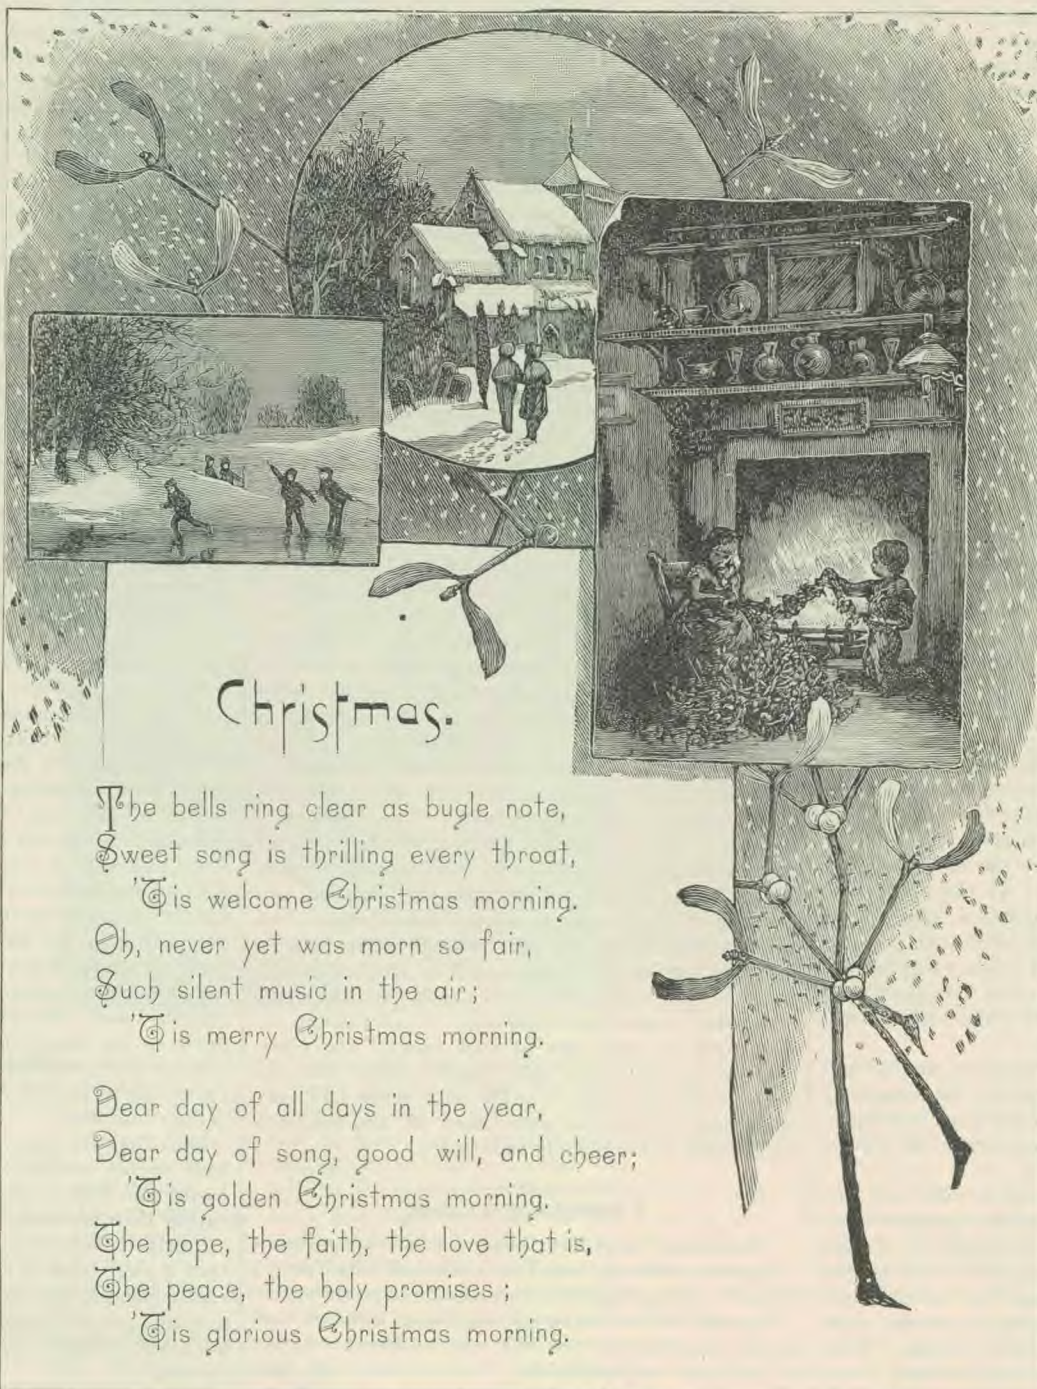 Christmas.
The bells ring clear as bugle note,
Sweet song is thrilling every throat,
'Tis welcome Christmas morning.
Oh, never yet was morn so fair,
Such silent music in the air;
'Tis merry Christmas morning.
Dear day of all days in the year,
Dear day of song, good will, and cheer;
'Tis golden Christmas morning.
The hope, the faith, the love that is,
The peace, the holy promises;
'Tis glorious Christmas morning.